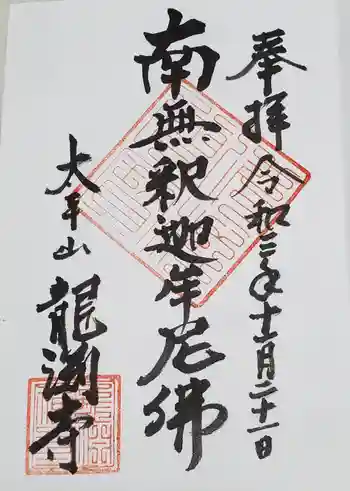 奉拝 令和三年十二月二十一日
南無釈迦牟尼佛
太平山 龍淵寺